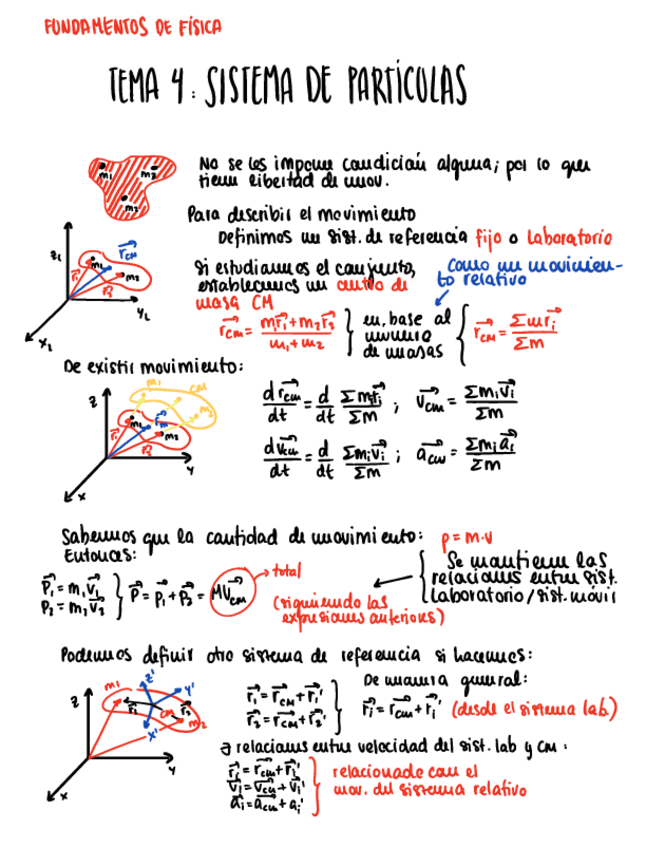 FUNDAMENTOS DE FÍSICA
TEMA 4: SISTEMA DE PARTÍCULAS
m₁ m₃
m₂
No se les impone condición alguna; por lo que
tienen libertad de mov.
Para describir el movimiento
Definimos un sist. de referencia fijo o laboratorio
z₁ m₁ r⃗cm
r⃗₁ r⃗₂ m₂
y₁
x₁
Si estudiamos el conjunto,
establecemos un centro de
masa CM
como un movimien-
to relativo
r⃗cm = (m₁r⃗₁+m₂r⃗₂)/(m₁+m₂)
en base al
número
de masas
r⃗cm = Σmr⃗i/Σm
De existir movimiento:
z m₁ CM m₂
m₁ m₂
r⃗₁ r⃗₂
y
x
dr⃗cm/dt = d/dt Σmr⃗i/Σm ; v⃗cm = Σmiv⃗i/Σm
dv⃗cm/dt = d/dt Σmiv⃗i/Σm ; a⃗cm = Σmia⃗i/Σm
Sabemos que la cantidad de movimiento: p=m·v
Entonces:
p⃗₁=m₁v⃗₁
p₂=m₂v⃗₂
p⃗=p⃗₁+p⃗₂= Mv⃗cm
total
(siguiendo las
expresiones anteriores)
Se mantienen las
relaciones entre sist.
laboratorio/sist. móvil
Podemos definir otro sistema de referencia si hacemos:
m₁ z' y'
z CM m₂
x'
y
x
r⃗₁=r⃗cm+r⃗₁'
r⃗₂=r⃗cm+r⃗₂'
De manera general:
r⃗i=r⃗cm+r⃗i' (desde el sistema lab.)
∃ relaciones entre velocidad del sist. lab y cm:
r⃗i=r⃗cm+r⃗i'
v⃗i=v⃗cm+v⃗i'
a⃗i=a⃗cm+ai'
relacionado con el
mov. del sistema relativo